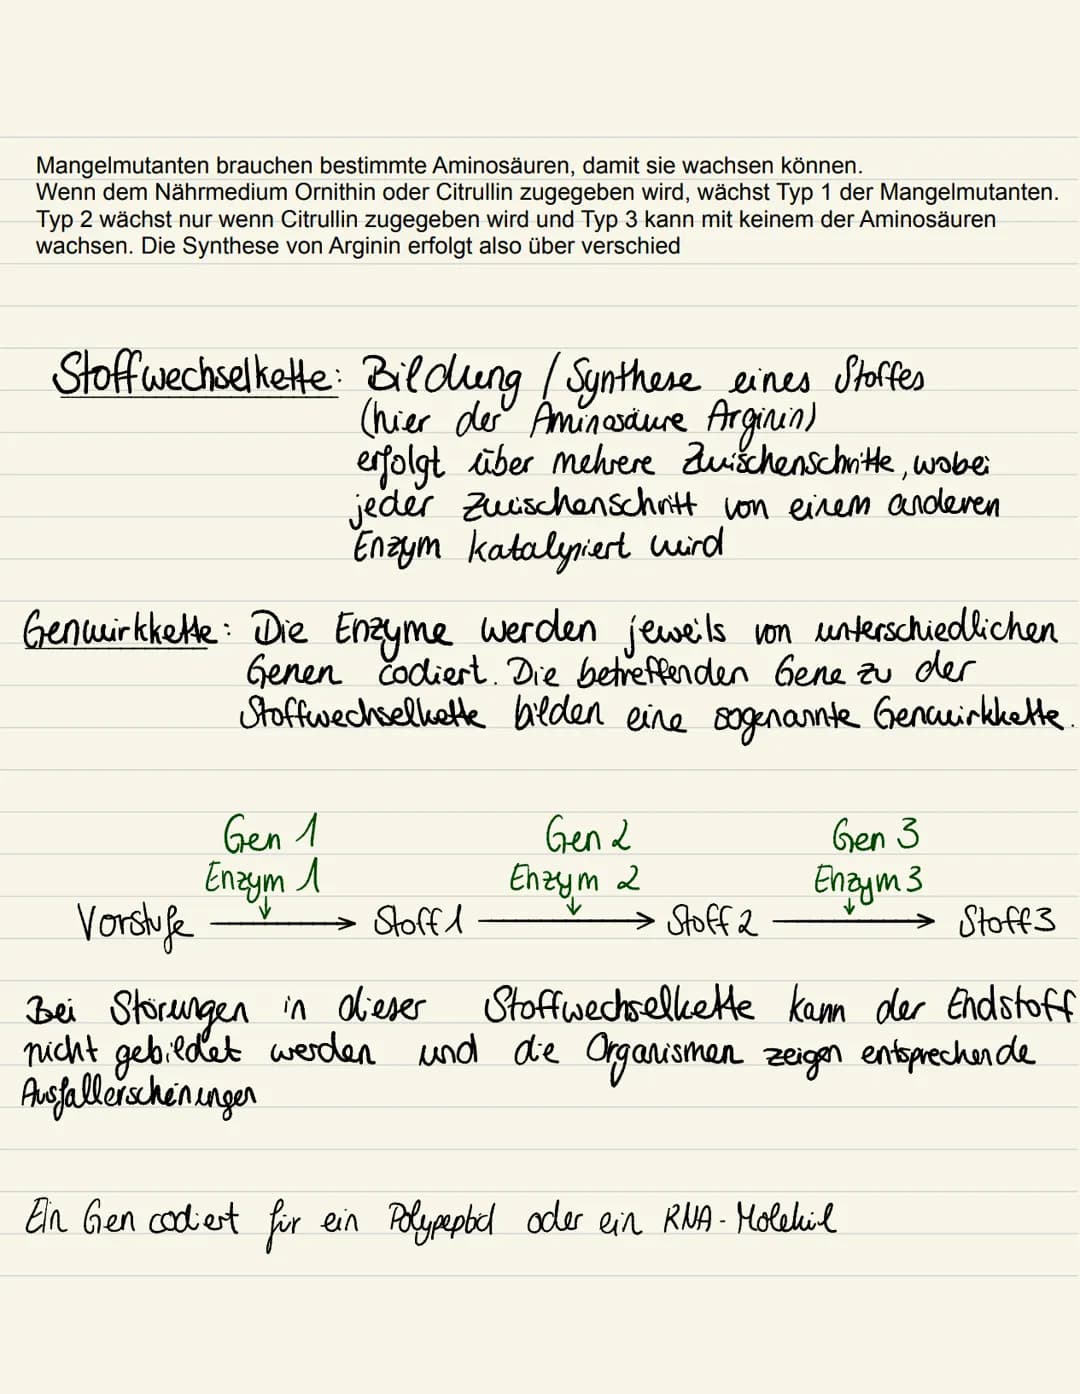 Mangelmutanten brauchen bestimmte Aminosäuren, damit sie wachsen können.
Wenn dem Nährmedium Ornithin oder Citrullin zugegeben wird, wächst Typ 1 der Mangelmutanten.
Typ 2 wächst nur wenn Citrullin zugegeben wird und Typ 3 kann mit keinem der Aminosäuren
wachsen. Die Synthese von Arginin erfolgt also über verschied
Stoffwechselkette: Bildung / Synthese eines Stoffes
(hier der Aminosäure Arginin)
erfolgt über mehrere Zwischenschritte, wobei
jeder Zwischenschritt von einem anderen
Enzym katalysiert wird
Genwirkkette: Die Enzyme werden jeweils von unterschiedlichen
Genen codiert. Die betreffenden Gene zu der
Stoffwechselkette bilden eine sogenannte Genwirkkette.
Gen 1 Gen 2 Gen 3
Enzym 1 Enzym 2 Enzym 3
Vorstufe → Stoff 1 → Stoff 2 → Stoff 3
Bei Störungen in dieser Stoffwechselkette kann der Endstoff
nicht gebildet werden und die Organismen zeigen entsprechende
Ausfallerscheinungen
Ein Gen codiert für ein Polypeptid oder ein RNA-Molekül